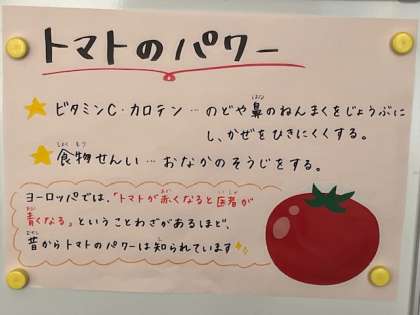 トマトのパワー
ビタミンC・カロテン…のどや鼻のねんまくをじょうぶに
し、かぜをひきにくくする。
食物せんい…おなかのそうじをする。
ヨーロッパでは、「トマトが赤くなると医者が
青くなる」ということわざがあるほど、
昔からトマトのパワーは知られています